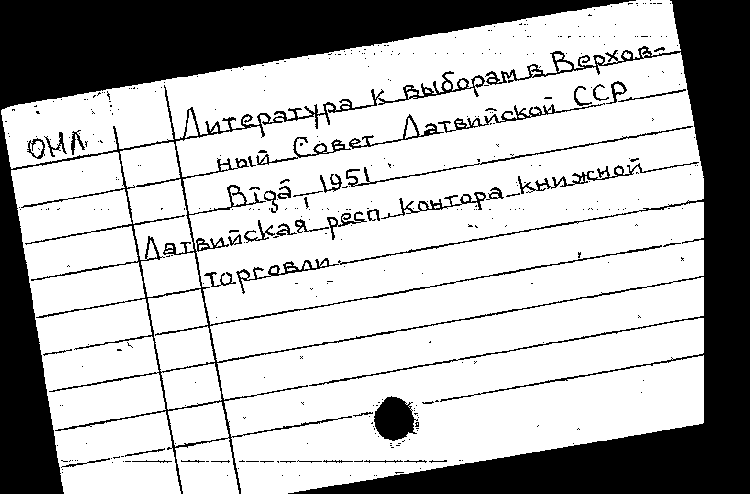 ОНЛ
Литература к выборам в Верхов-
ный Совет Латвийской ССР
Rīgā, 1951
Латвийская респ. контора книжной
торговли.